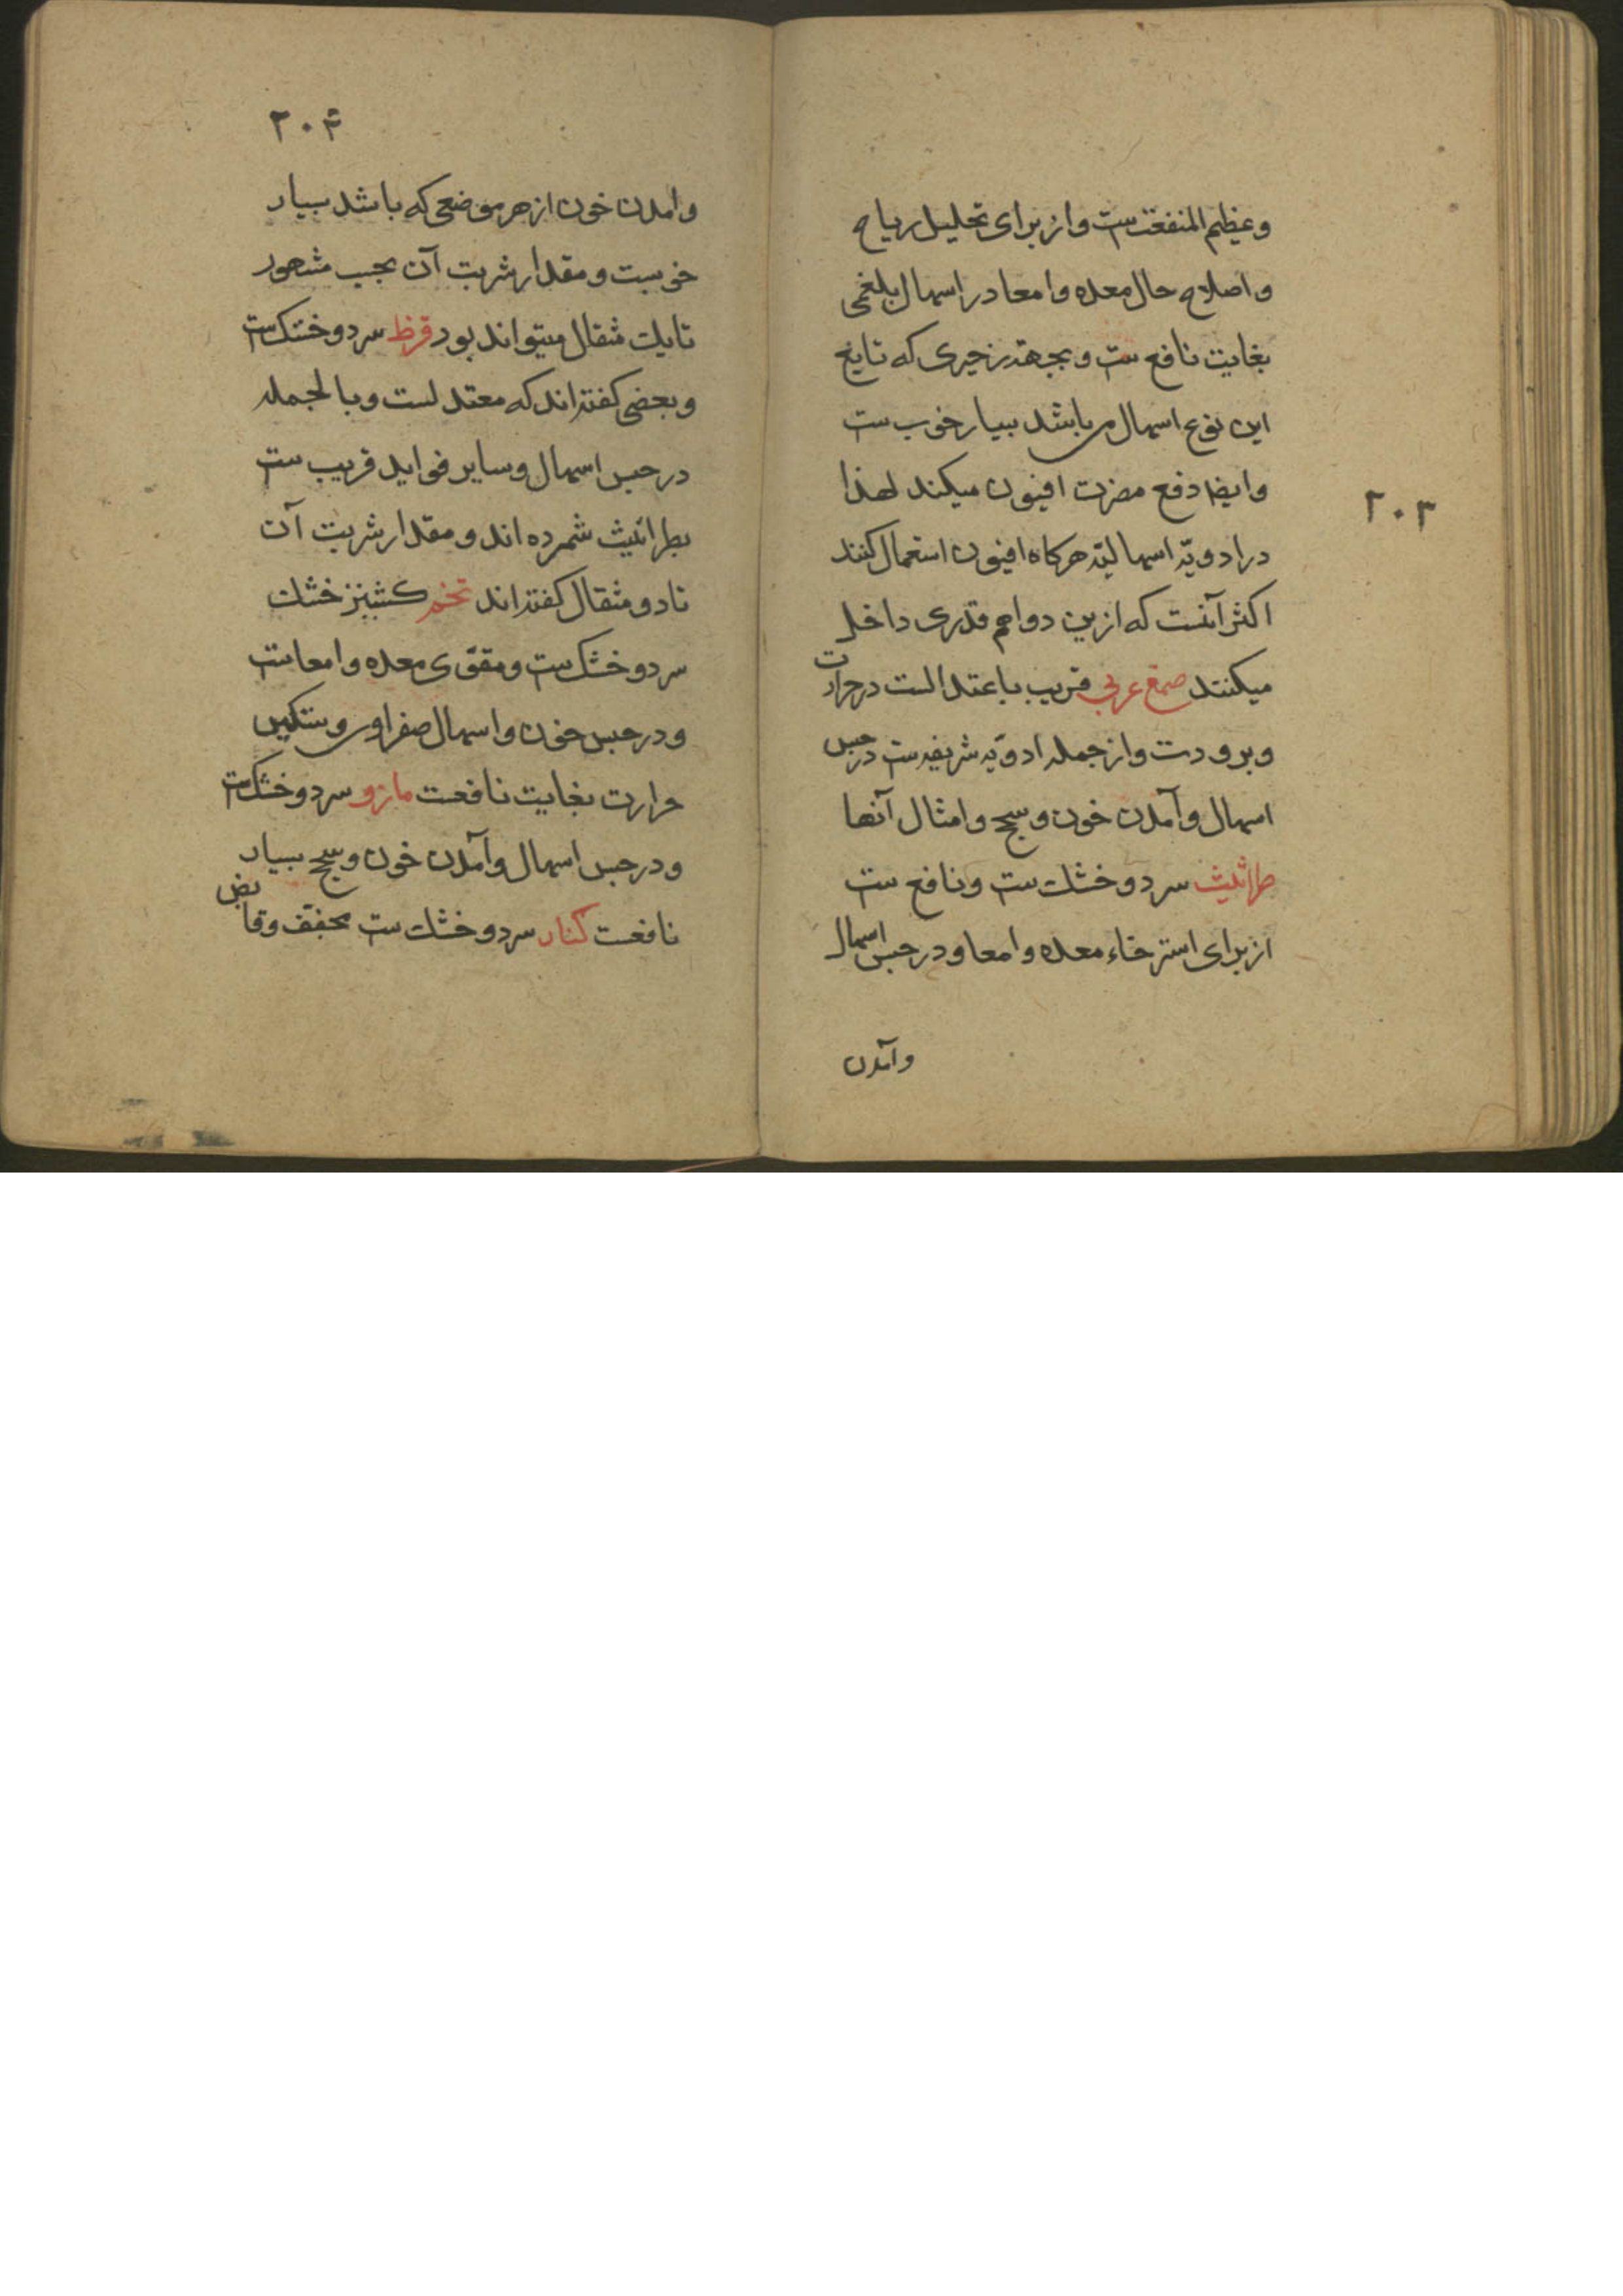 ۲۰۳
وعظیم المنفعت ست واز برای تحلیل ریاح
واصلاح حال معده وامعا در اسهال بلغمی
بغایت نافع ست وبجهة زحیری که تابع
این نوع اسهال می باشد بسیار خوب ست
وایضا دفع مضرت افیون میکند لهذا
در ادویّه اسهالیّه هرکاه افیون استعمال کنند
اکثر آنست که ازین دوا هم قدری داخل
میکنند صمغ عربی قریب باعتدالست در حرارت
وبرودت واز جمله ادویّه شریفه ست در حبس
اسهال وآمدن خون وسحج وامثال آنها
طراثیث سرد وخشک ست ونافع ست
از برای استرخاء معده وامعا ودر حبس اسهال
وآمدن
۲۰۴
وامدن خون از هر موضعی که باشد بسیار
خوبست ومقدار شربت آن بحسب مشهور
تا یک مثقال میتواند بود قرظ سرد وخشک ست
وبعضی کفته اند که معتدلست وبالجمله
در حبس اسهال وسایر فواید قریب ست
بطراثیث شمرده اند ومقدار شربت آن
تا دو مثقال کفته اند تخم کشنیز خشک
سرد وخشک ست ومقوّی معده وامعاست
ودر حبس خون واسهال صفراوی وتسکین
حرارت بغایت نافعست مازو سرد وخشک ست
ودر حبس اسهال وآمدن خون وسحج بسیار
نافعست کنار سرد وخشک ست مجفّف وقابض